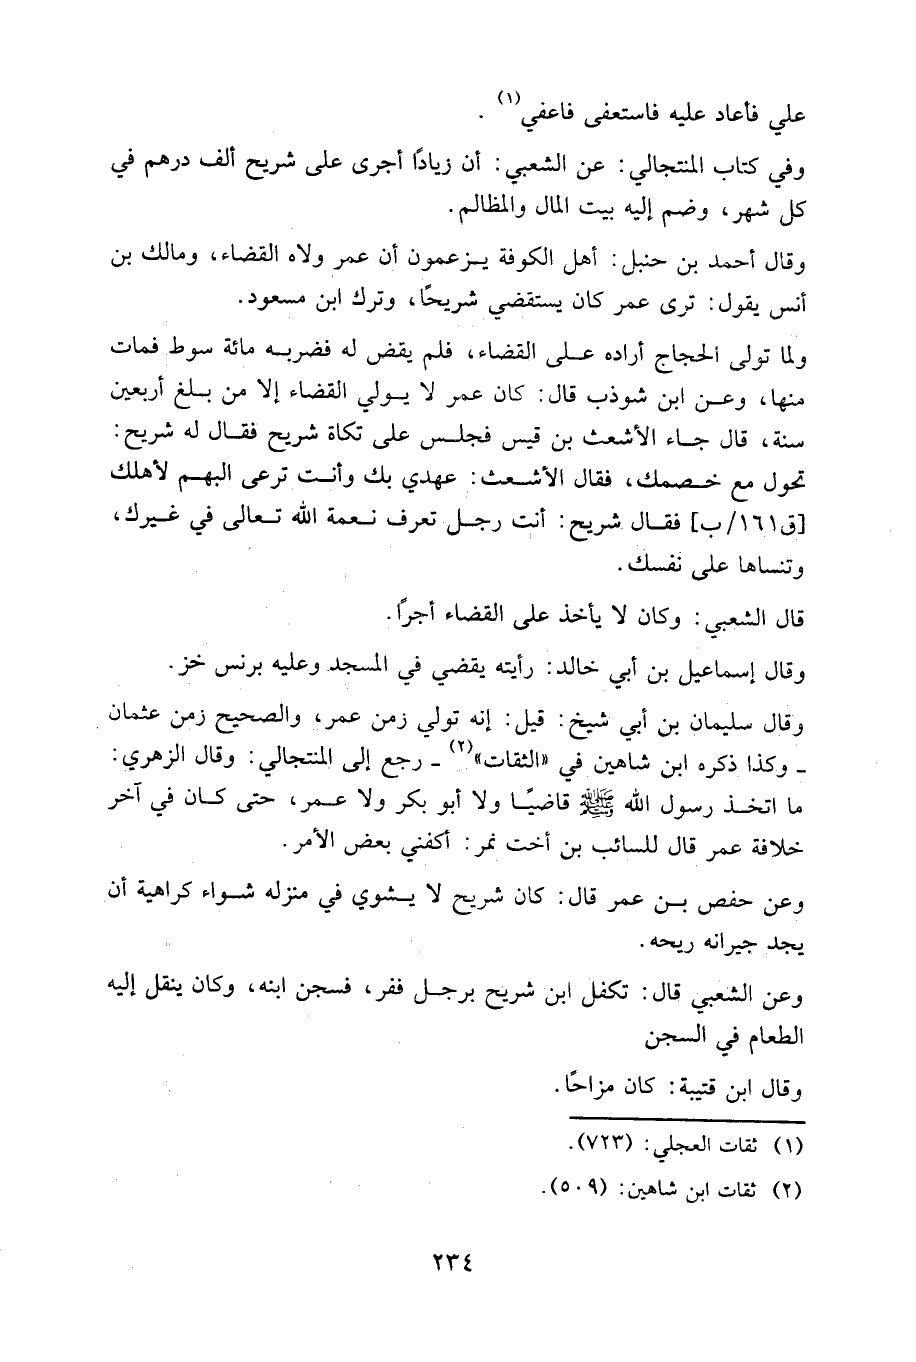 علي فأعاد عليه فاستعفى فاعفي(١).
وفي كتاب المنتجالي: عن الشعبي: أن زيادًا أجرى على شريح ألف درهم في
كل شهر، وضم إليه بيت المال والمظالم.
وقال أحمد بن حنبل: أهل الكوفة يزعمون أن عمر ولاه القضاء، ومالك بن
أنس يقول: ترى عمر كان يستقضي شريحًا، وترك ابن مسعود.
ولما تولى الحجاج أراده على القضاء، فلم يقض له فضربه مائة سوط فمات
منها، وعن ابن شوذب قال: كان عمر لا يولي القضاء إلا من بلغ أربعين
سنة، قال جاء الأشعث بن قيس فجلس على تكاة شريح فقال له شريح:
تحول مع خصمك، فقال الأشعث: عهدي بك وأنت ترعى البهم لأهلك
[ق١٦١/ب] فقال شريح: أنت رجل تعرف نعمة الله تعالى في غيرك،
وتنساها على نفسك.
قال الشعبي: وكان لا يأخذ على القضاء أجرًا.
وقال إسماعيل بن أبي خالد: رأيته يقضي في المسجد وعليه برنس خز.
وقال سليمان بن أبي شيخ: قيل: إنه تولي زمن عمر، والصحيح زمن عثمان
ـ وكذا ذكره ابن شاهين في «الثقات»(٢) ـ رجع إلى المنتجالي: وقال الزهري:
ما اتخذ رسول الله ﷺ قاضيًا ولا أبو بكر ولا عمر، حتى كان في آخر
خلافة عمر قال للسائب بن أخت نمر: أكفني بعض الأمر.
وعن حفص بن عمر قال: كان شريح لا يشوي في منزله شواء كراهية أن
يجد جيرانه ريحه.
وعن الشعبي قال: تكفل ابن شريح برجل ففر، فسجن ابنه، وكان ينقل إليه
الطعام في السجن
وقال ابن قتيبة: كان مزاحًا.
(١) ثقات العجلي: (٧٢٣).
(٢) ثقات ابن شاهين: (٥٠٩).
٢٣٤